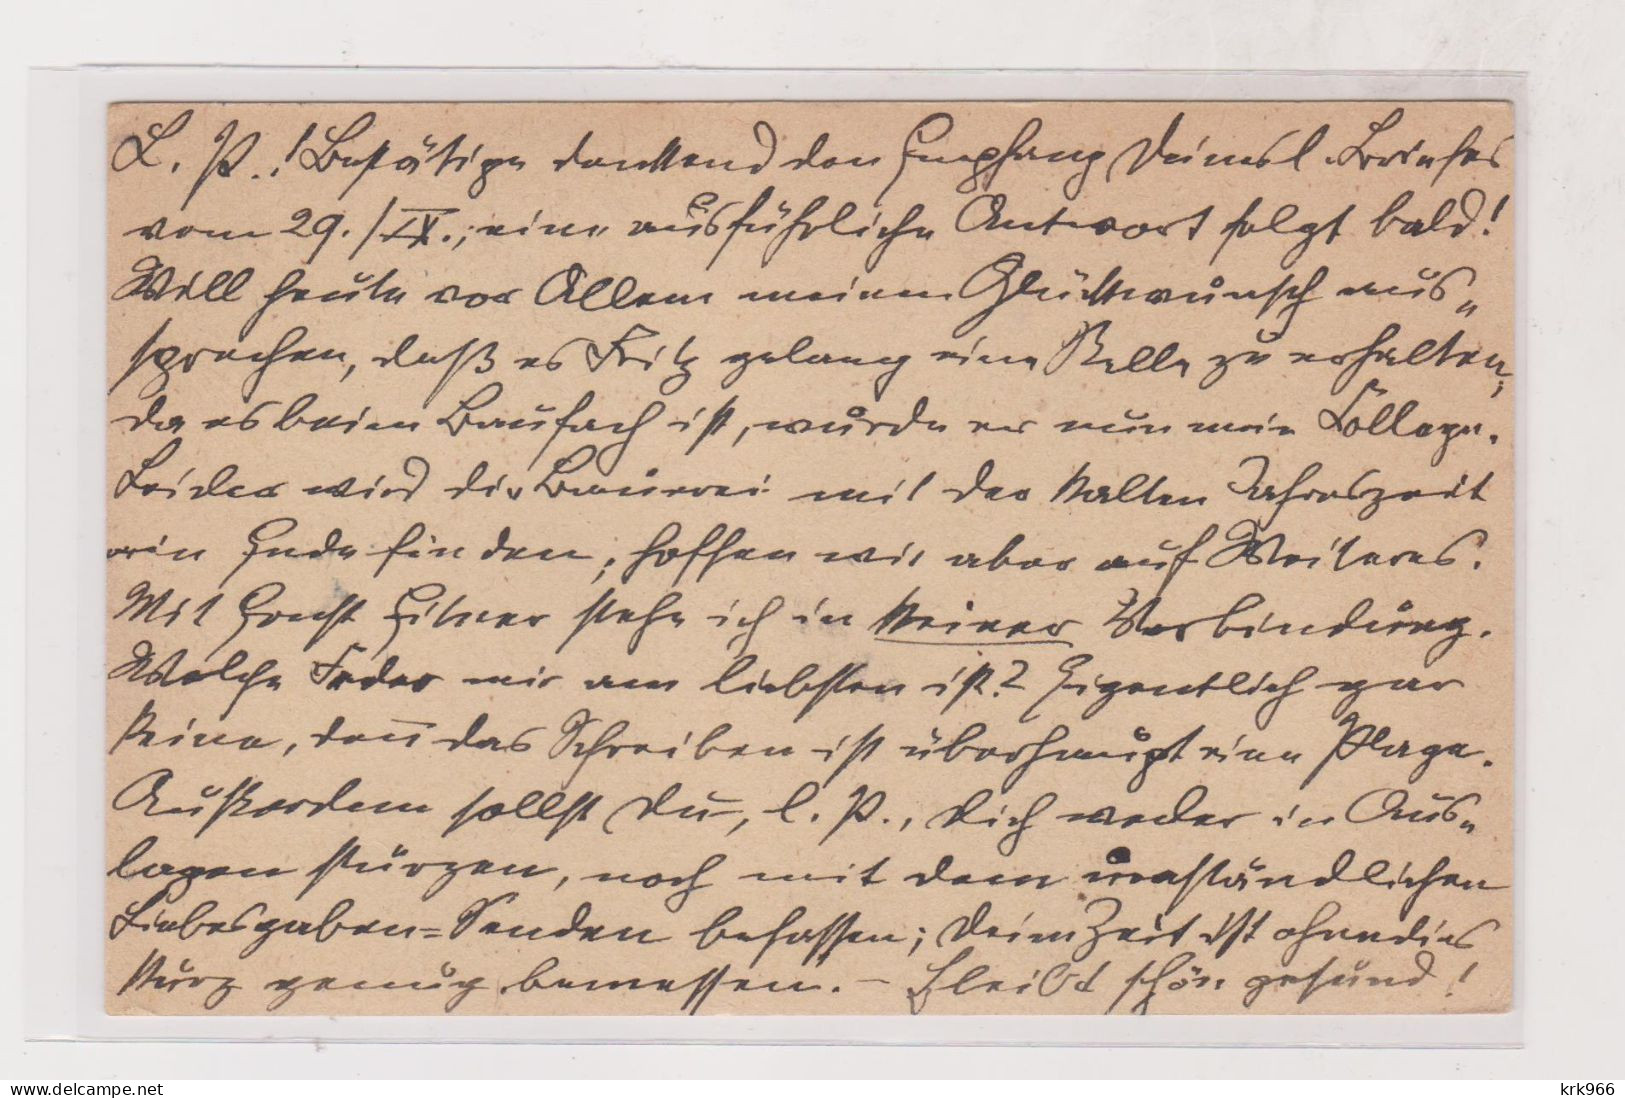 L. P.! Bestätige dankend den Empfang Deines l. Briefes
vom 29./IX.; eine ausführliche Antwort folgt bald!
Will heute vor Allem meinen Glückwunsch aus-
sprechen, daß es Fritz gelang eine Stelle zu erhalten;
da es beim Baufach ist, wurde er nun mein Collega.
Leider wird die Bauerei mit der kalten Jahreszeit
ein Ende finden; hoffen wir aber auf Weiteres.
Mit Ernst stehe ich in keiner Verbindung.
Welche Feder mir am liebsten ist? Eigentlich gar
keine, denn das Schreiben ist überhaupt eine Plage.
Außerdem sollst Du, l. P., Dich weder in Aus-
lagen stürzen, noch mit dem umständlichen
Liebesgaben-Senden befassen; Deine Zeit ist ohnedies
kurz genug bemessen. – Bleibt schön gesund!
www.delcampe.net
krk966